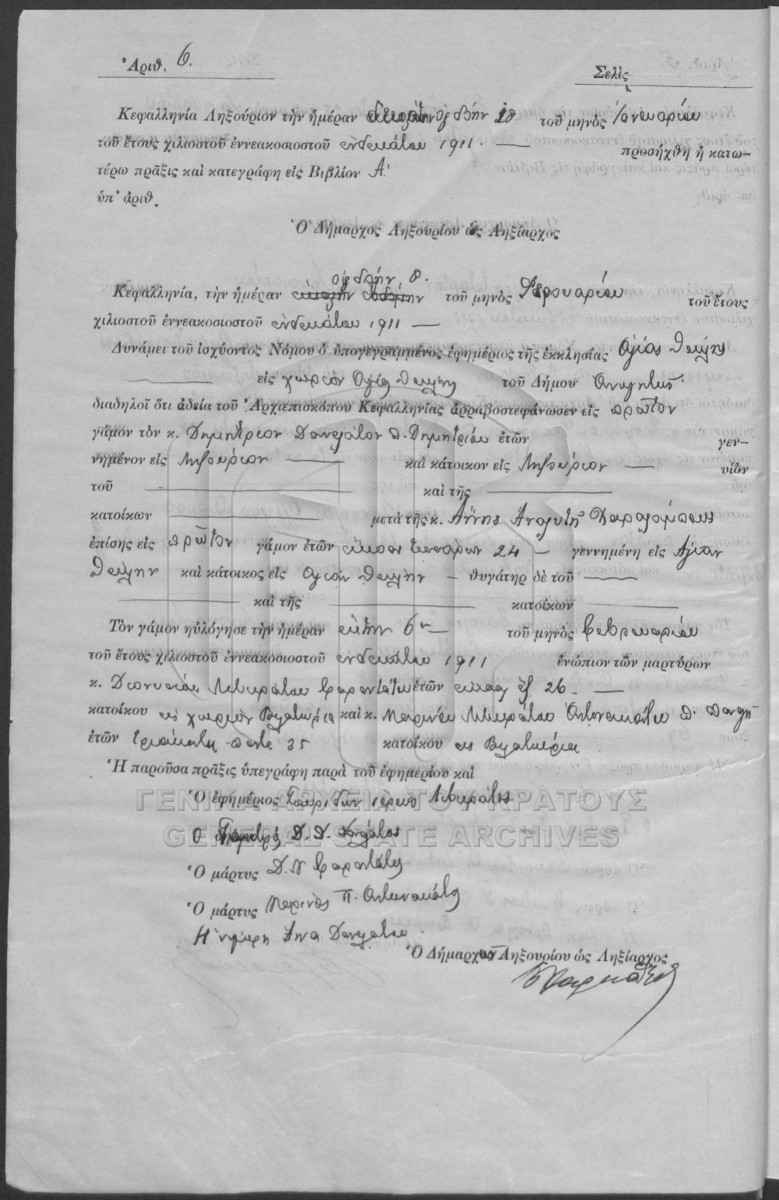 Ἀριθ. 6.
Σελὶς
Κεφαλληνία Ληξούριον τὴν ἡμέραν ὀγδόην 18 τοῦ μηνὸς Ἰανουαρίου
τοῦ ἔτους χιλιοστοῦ ἐννεακοσιοστοῦ ἑνδεκάτου 1911 — προσήχθη ἡ κατω-
τέρω πρᾶξις καὶ κατεγράφη εἰς Βιβλίον Α'
ὑπ' ἀριθ.
Ὁ Δήμαρχος Ληξουρίου ὡς Ληξίαρχος
ὀγδόην 8.
Κεφαλληνία, τὴν ἡμέραν τοῦ μηνὸς Φεβρουαρίου τοῦ ἔτους
χιλιοστοῦ ἐννεακοσιοστοῦ ἑνδεκάτου 1911 —
Δυνάμει τοῦ ἰσχύοντος Νόμου ὁ ὑπογεγραμμένος ἐφημέριος τῆς ἐκκλησίας Ἁγίας Θέκλης
εἰς χωρίον Ἁγίας Θέκλης τοῦ Δήμου Ἀνωγῆς
διαδηλοῖ ὅτι ἀδείᾳ τοῦ Ἀρχιεπισκόπου Κεφαλληνίας ἀρραβοστεφάνωσεν εἰς πρῶτον
γάμον τὸν κ. Δημήτριον Δανελάτον π. Δημητρίου ἐτῶν γεν-
νημένον εἰς Ληξούριον — καὶ κάτοικον εἰς Ληξούριον — υἱὸν
τοῦ — καὶ τῆς —
κατοίκων — μετὰ τῆς κ. Ἄννης Ἀναλυτῆ Χαραλάμπους
ἐπίσης εἰς πρῶτον γάμον ἐτῶν εἴκοσι τεσσάρων 24 — γεννημένη εἰς Ἁγίαν
Θέκλην καὶ κάτοικος εἰς Ἁγίαν Θέκλην — θυγάτηρ δὲ τοῦ —
— καὶ τῆς — κατοίκων —
Τὸν γάμον ηὐλόγησε τὴν ἡμέραν ἕκτην 6ην τοῦ μηνὸς Φεβρουαρίου
τοῦ ἔτους χιλιοστοῦ ἐννεακοσιοστοῦ ἑνδεκάτου 1911 ἐνώπιον τῶν μαρτύρων
κ. Διονυσίου Λιβιεράτου Φαραντάτου ἐτῶν εἴκοσι ἕξ 26 —
κατοίκου εἰς χωρίον Βιλατώρια καὶ κ. Μαρίνου Λιβιεράτου Ἀντωνακάτου π.
ἐτῶν τριάκοντα πέντε 35 κατοίκου εἰς Βιλατώρια
Ἡ παροῦσα πρᾶξις ὑπεγράφη παρὰ τοῦ ἐφημερίου καὶ
Ὁ ἐφημέριος Σπυρίδων ἱερεὺς Λιβιεράτος
Ὁ γαμβρός Δ. Δ. Δανελάτος
Ὁ μάρτυς Δ. Ν Φαραντάτος
Ὁ μάρτυς Μαρίνος Π. Ἀντωνακάτος
Ἡ νύμφη Ἄνα Δανελάτου
Ὁ Δήμαρχος Ληξουρίου ὡς Ληξίαρχος
ΓΕΝΙΚΑ ΑΡΧΕΙΑ ΤΟΥ ΚΡΑΤΟΥΣ
GENERAL STATE ARCHIVES